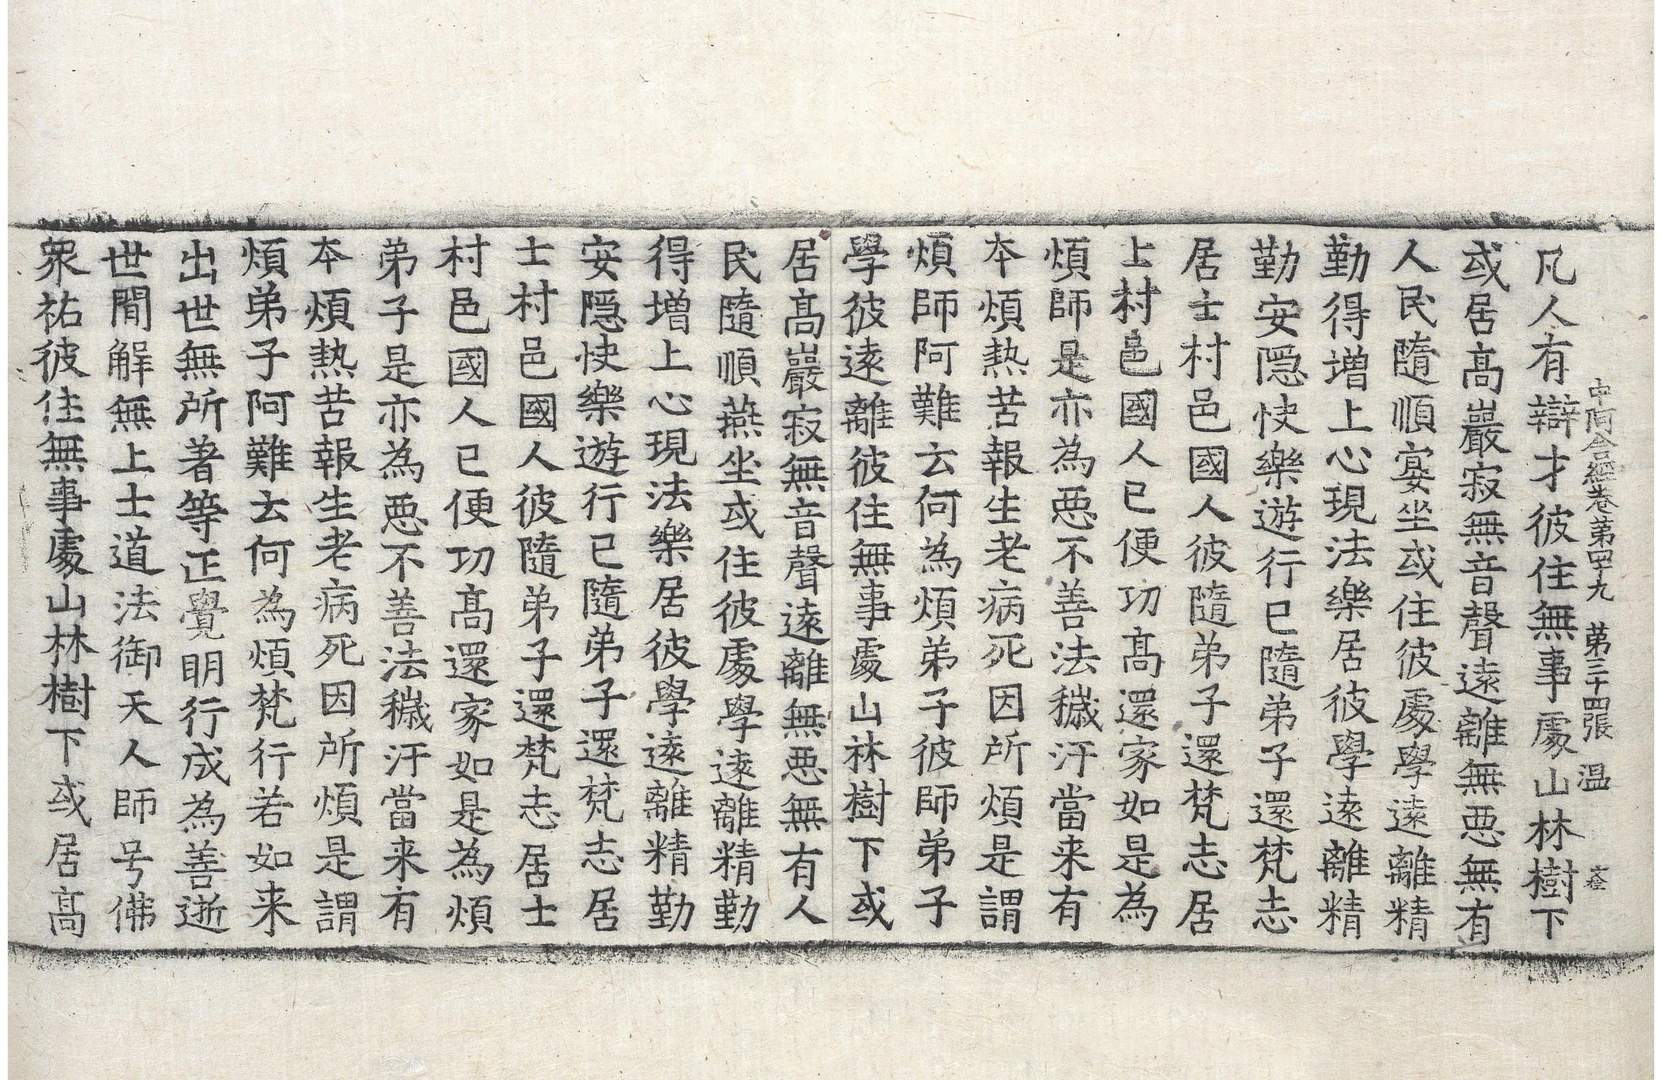 中阿含經卷第四十九　第三十四張　温
凡人有辯才彼住無事處山林樹下
或居高巖寂無音聲遠離無惡無有
人民隨順宴坐或住彼處學遠離精
勤得增上心現法樂居彼學遠離精
勤安隱快樂遊行已隨弟子還梵志
居士村邑國人彼隨弟子還梵志居
士村邑國人已便功高還家如是為
煩師是亦為惡不善法穢汙當来有
本煩熱苦報生老病死因所煩是謂
煩師阿難云何為煩弟子彼師弟子
學彼遠離彼住無事處山林樹下或
居高巖寂無音聲遠離無惡無有人
民隨順燕坐或住彼處學遠離精勤
得增上心現法樂居彼學遠離精勤
安隱快樂遊行已隨弟子還梵志居
士村邑國人彼隨弟子還梵志居士
村邑國人已便功高還家如是為煩
弟子是亦為惡不善法穢汙當来有
本煩熱苦報生老病死因所煩是謂
煩弟子阿難云何為煩梵行若如来
出世無所著等正覺明行成為善逝
世間解無上士道法御天人師号佛
衆祐彼住無事處山林樹下或居高